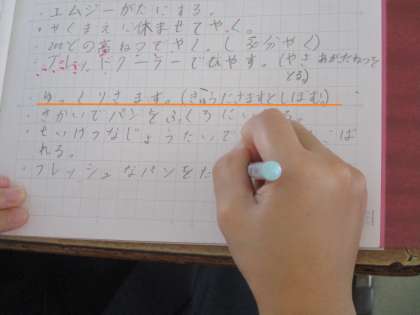 ・エムジーがたにする。
・やくまえに休ませてやく。
・200どの高ねつでやく。(30分やく)
・ブレッドクーラーでひやす。(やさ あがたねつをとる)
・ゆっくりさます。(きゅうにさますとしぼむ)
・きかいでパンをふくろにいれる。
・せいけつなじょうたいで ば
れる。
・フレッシュなパンをた